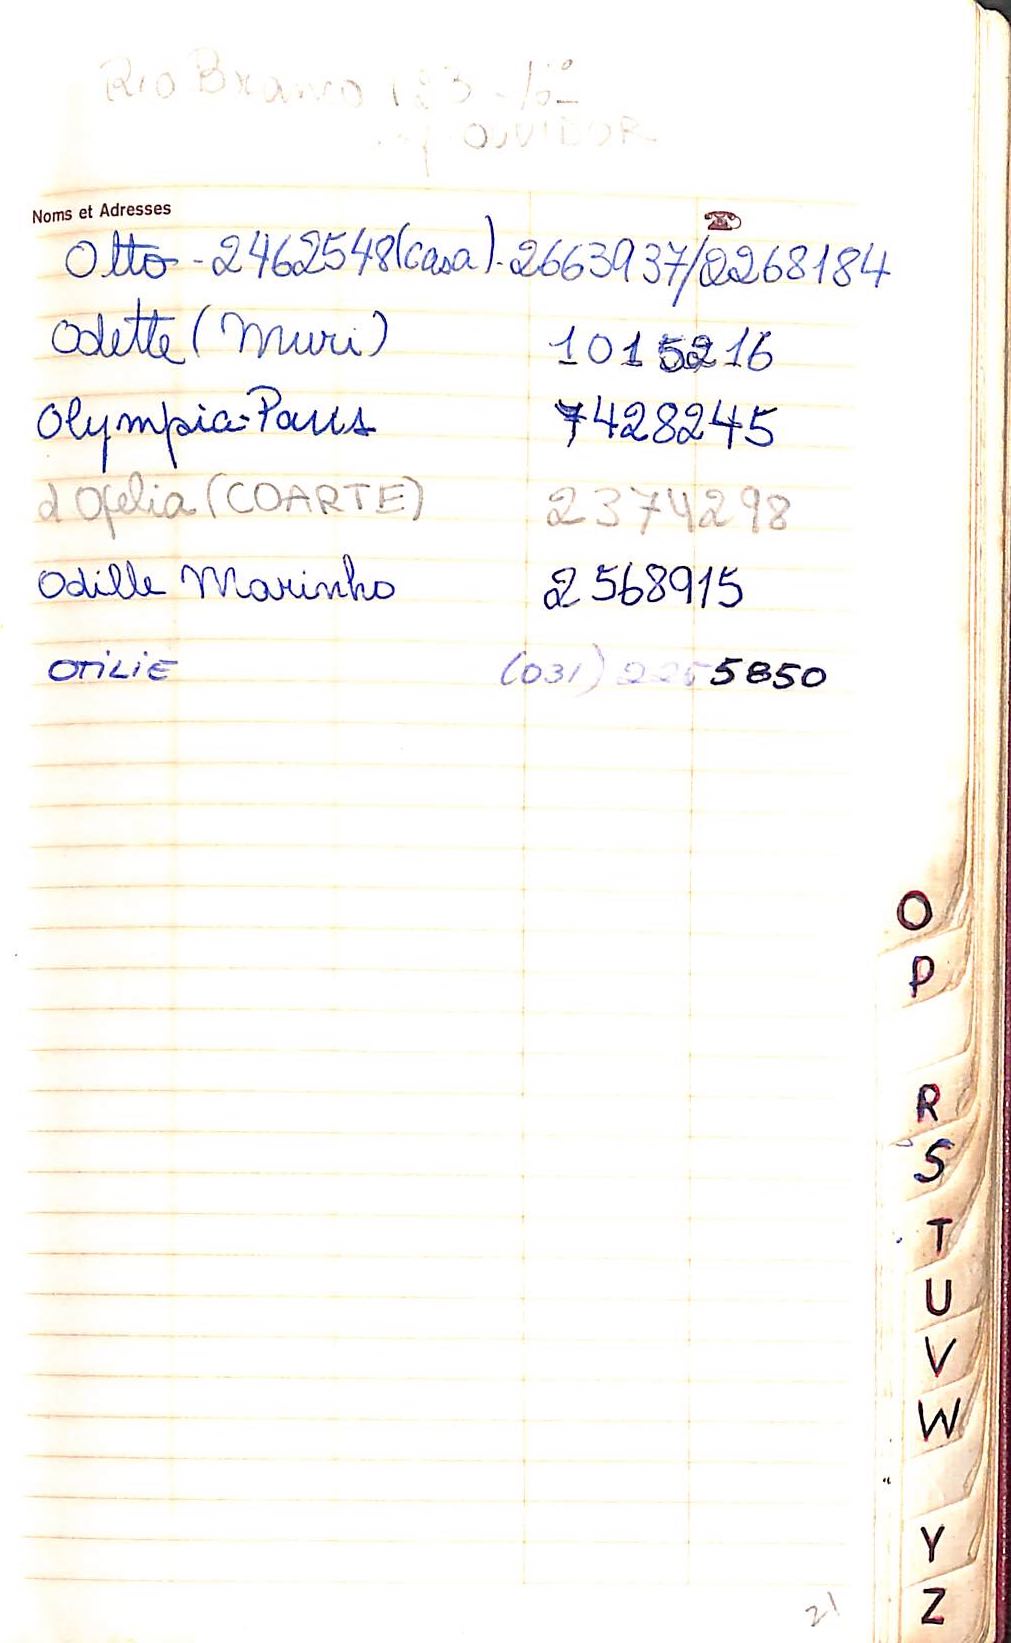 Rio Branco 123 - 16º
OUVIDOR
Noms et Adresses
Otto - 2462548 (casa) - 2663937/2268184
Odette (Muri) 1015216
Olympia-Paris 7428245
d Ofelia (COARTE) 2374298
Odille Marinho 2568915
OTILIE (031) 2255850
O
P
R
S
T
U
V
W
Y
Z
21